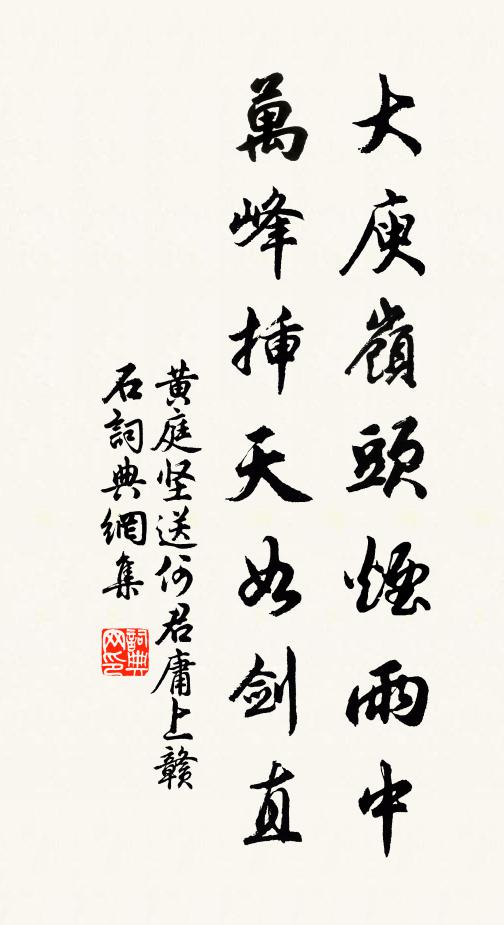 大庾嶺頭煙雨中
萬峰插天如劍直
黃庭坚送何君庸上贛
石詞典網集
詞典網印